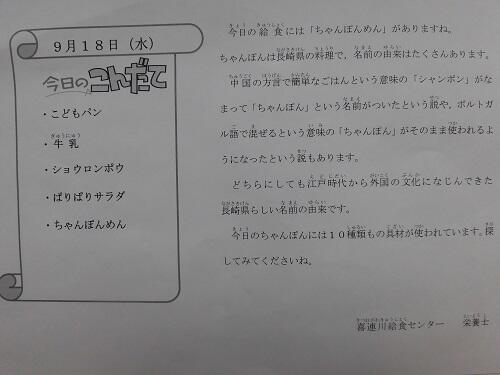 ９月１８日（水）
今日のこんだて
・こどもパン
・牛乳
・ショウロンポウ
・ぱりぱりサラダ
・ちゃんぽんめん
今日の給食には「ちゃんぽんめん」がありますね。
ちゃんぽんは長崎県の料理で、名前の由来はたくさんあります。
中国の方言で簡単なごはんという意味の「シャンポン」がな
まって「ちゃんぽん」という名前がついたという説や、ポルトガ
ル語で混ぜるという意味の「ちゃんぽん」がそのまま使われるよ
うになったという説もあります。
どちらにしても江戸時代から外国の文化になじんできた
長崎県らしい名前の由来です。
今日のちゃんぽんには１０種類もの具材が使われています。探
してみてくださいね。
喜連川給食センター　栄養士